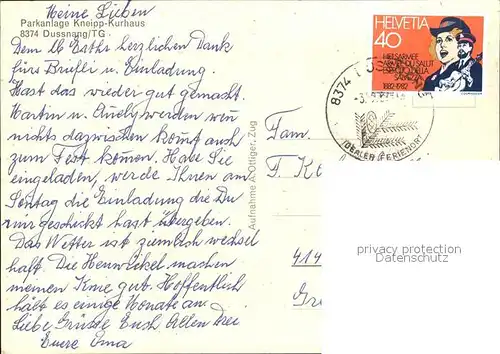 Meine Lieben
Parkanlage Kneipp-Kurhaus
8374 Dussnang/TG
Dem lb Esthr herzlichen Dank
fürs Briefli u Einladung.
Hast das wieder gut gemacht.
Martin u. werden wen
nichts dazwischen komt auch
zum Fest komen. Habe Sie
eingeladen, werde Ihnen am
Sontag die Einladung die Du
mir geschickt hast übergeben.
Das Wetter ist zemlich wechsel
haft. Die Heuwikel machen
meinen Knie gut. Hoffentlich
hält es einige Monate an.
Liebe Grüsse Euch Allen Drei
Eure Oma
Aufnahme A. Ottiger, Zug
HELVETIA
40
HEILSARMEE
ARMÉE DU SALUT
ESERCITO DELLA
SALVEZZA
1882-1982
8374 DUSSNANG
IDEALER FERIENORT
Fam.
F. K
414
Gr
privacy protection
Datenschutz